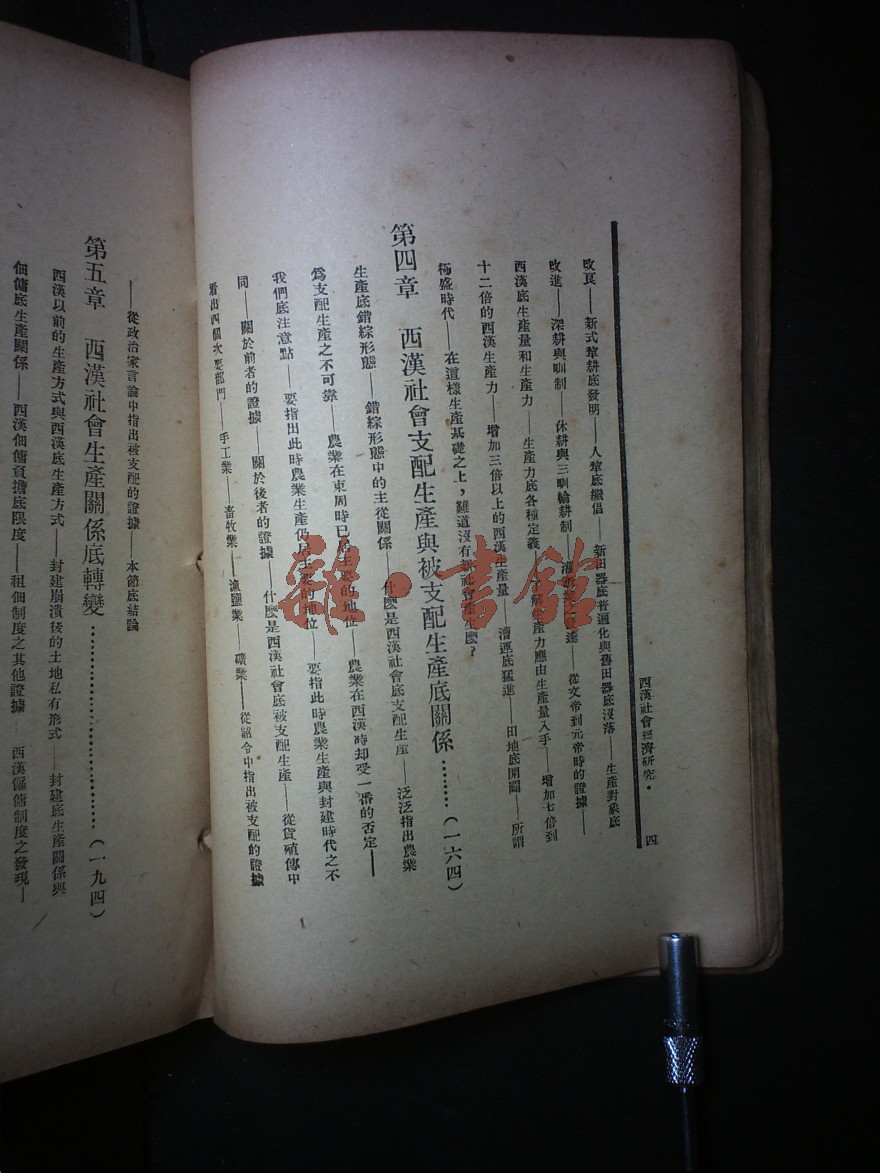 西漢社會經濟研究・
四
改良——新式犂耕底發明——人犂底繼倡——新田器底普遍化與舊田器底沒落——生產對象底
改進——深耕與甽制——休耕與三甽輪耕制——從文帝到元帝時的證據——
西漢底生產量和生產力——生產力底各種定義——生產力應由生產量入手——增加七倍到
十二倍的西漢生產力——增加三倍以上的西漢生產量——漕運底猛進——田地底開闢——所謂
極盛時代——在這樣生產基礎之上，難道沒有新社會產生麼？
第四章 西漢社會支配生產與被支配生產底關係………（一六四）
生產底錯綜形態——錯綜形態中的主從關係——什麼是西漢社會底支配生產——泛泛指出農業
爲支配生產之不可靠——農業在東周時已居主要的地位——農業在西漢時却受一番的否定——
我們底注意點——要指出此時農業生產仍居主要的地位——要指此時農業生產與封建時代之不
同——關於前者的證據——關於後者的證據——什麼是西漢社會底被支配生產——從貨殖傳中
看出四個次要部門——手工業——畜牧業——漁鹽業——礦業——從詔令中指出被支配的證據
——從政治家言論中指出被支配的證據——本節底結論
第五章 西漢社會生產關係底轉變………………………（一九四）
西漢以前的生產方式與西漢底生產方式——封建崩潰後的土地私有形式——封建底生產關係與
佃傭底生產關係——西漢佃傭負擔底限度——租佃制度之其他證據——西漢傭制度之發現——
雜・書館